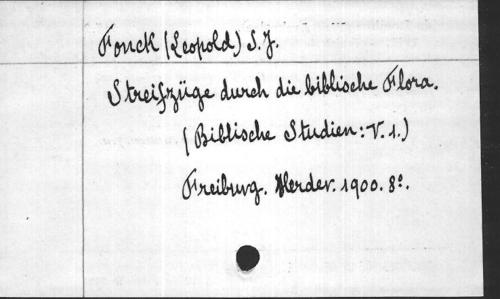 Fonck (Leopold) S. J.
Streifzüge durch die biblische Flora.
(Biblische Studien: V. 1.)
Freiburg. Herder. 1900. 8º.